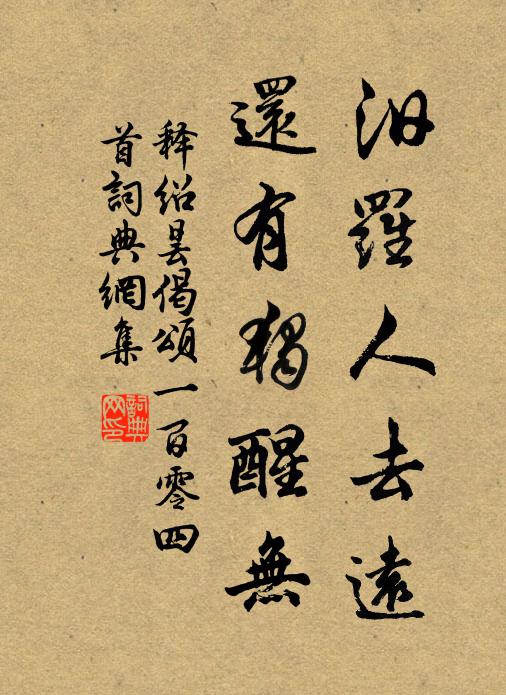 汨羅人去遠
還有獨醒無
释绍昙偈頌一百零四
首詞典網集
詞典
网印